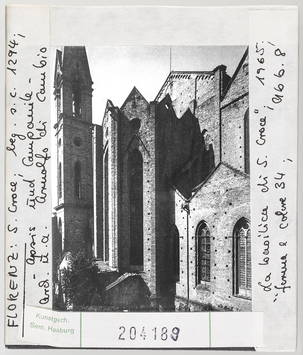 FLORENZ: S. Croce; beg. s. c. 1294;
Apsis und Campanile -
Arnolfo di Cambio
"La basilica di S. Croce", 1965,
figura e colore 34; 
Kunstgesch.
Sem. Hamburg
204189